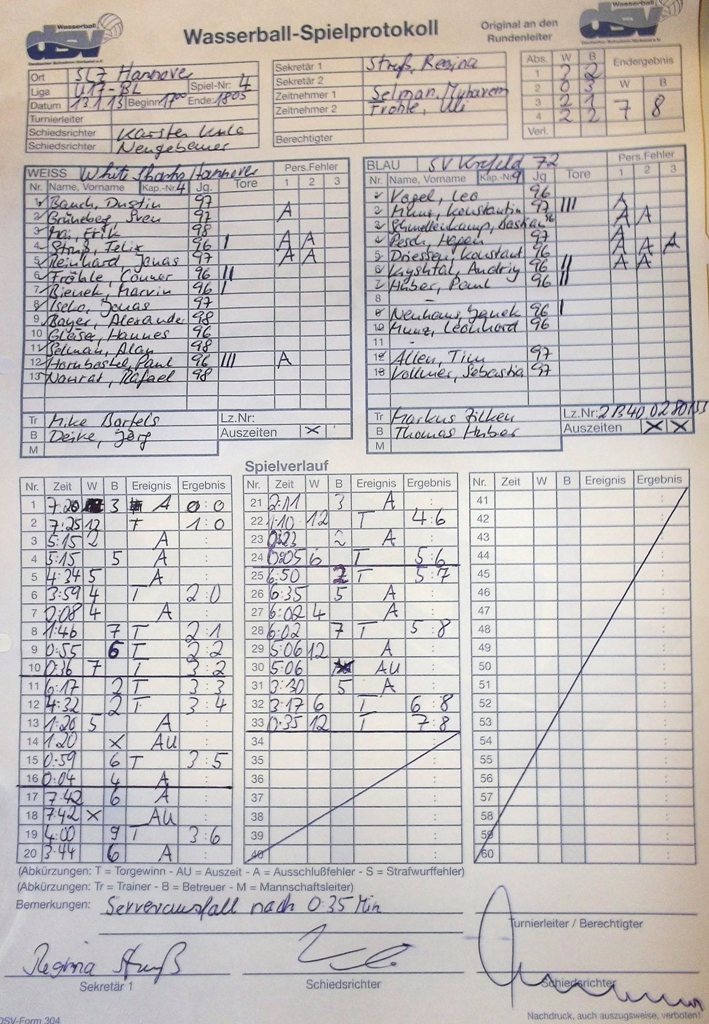 Wasserball
dsv
Deutscher Schwimm-Verband e.V.
Wasserball-Spielprotokoll
Original an den
Rundenleiter
Wasserball
dsv
Ort SLZ Hannover
Liga U17-BL Spiel-Nr: 4
Datum 13.1.13 Beginn: 17:00 Ende: 18:05
Turnierleiter
Schiedsrichter Karsten
Schiedsrichter Neugebauer
Sekretär 1 Struß, Regina
Sekretär 2
Zeitnehmer 1 Selman, Muharem
Zeitnehmer 2 Fröhle, Uli
Berechtigter
Abs. W B Endergebnis
1 2 2 W B
2 0 3
3 2 1 7 8
4 2 2
Verl.
WEISS White Sharks Hannover Pers.Fehler
Nr. Name, Vorname Kap.-Nr. 4 Jg. Tore 1 2 3
1 Bauch, Dustin 97
2 Grüneberg, Sven 97 A
3 Mai, Erik 98
4 Struß, Felix 96 I A A
5 Reinhard Jonas 96 A A
6 Fröhle, Conner 96 II
7 Bienek, Marvin 96 I
8 Jonas 97
9 Bayer, Alexander 98
10 Gläser, Hannes 96
11 Selman, Alan 98
12 Hornbostel, Paul 96 III A
13 Nawrat, Rafael 98
Tr Mike Bartels Lz.Nr:
B Deike, Jörg Auszeiten X
M
BLAU SV Krefeld 72 Pers.Fehler
Nr. Name, Vorname Kap.-Nr. 9 Jg. Tore 1 2 3
1 Vogel, Leo 96
2 Munz, Konstantin 97 III A
3 Schmellenkamp, Bastian 96 A A
4 Pesch, Hagen 97 A
5 Driessen, Konstant 96 A A A
6 Kryshtal, Andriy 96 II A A
7 Huber, Paul 96 II
8
9 Neuhaus, Yanek 96 I
10 Munz, Leonhard 96
11
12 Allen, Tim 97
13 Vollmer, Sebastia 97
Tr Markus Zilken Lz.Nr: 2B400280153
B Thomas Huber Auszeiten X X
M
Spielverlauf
Nr. Zeit W B Ereignis Ergebnis
1 7:20 3 A 0:0
2 7:25 12 T 1:0
3 5:15 2 A :
4 5:15 5 A :
5 4:34 5 A :
6 3:59 4 T 2:0
7 0:08 4 A :
8 1:46 7 T 2:1
9 0:55 6 T 2:2
10 0:36 7 T 3:2
11 6:17 2 T 3:3
12 4:32 2 T 3:4
13 1:26 5 A :
14 1:20 X AU :
15 0:59 6 T 3:5
16 0:04 4 A :
17 7:42 6 A :
18 7:42 X AU :
19 4:00 9 T 3:6
20 3:44 6 A :
Nr. Zeit W B Ereignis Ergebnis
21 2:11 3 A :
22 1:10 12 T 4:6
23 0:23 2 A :
24 0:05 6 T 5:6
25 6:50 2 T 5:7
26 6:35 5 A :
27 6:02 4 A :
28 6:02 7 T 5:8
29 5:06 12 A :
30 5:06 X AU :
31 3:30 5 A :
32 3:17 6 T 6:8
33 0:35 12 T 7:8
34 :
35 :
36 :
37 :
38 :
39 :
40 :
Nr. Zeit W B Ereignis Ergebnis
41 :
42 :
43 :
44 :
45 :
46 :
47 :
48 :
49 :
50 :
51 :
52 :
53 :
54 :
55 :
56 :
57 :
58 :
59 :
60 :
(Abkürzungen: T = Torgewinn - AU = Auszeit - A = Ausschlußfehler - S = Strafwurffehler)
(Abkürzungen: Tr = Trainer - B = Betreuer - M = Mannschaftsleiter)
Bemerkungen: Serverausfall nach 0:35 Min
Turnierleiter / Berechtigter
Regina Struß
Sekretär 1
Schiedsrichter
Schiedsrichter
DSV-Form 304
Nachdruck, auch auszugsweise, verboten!